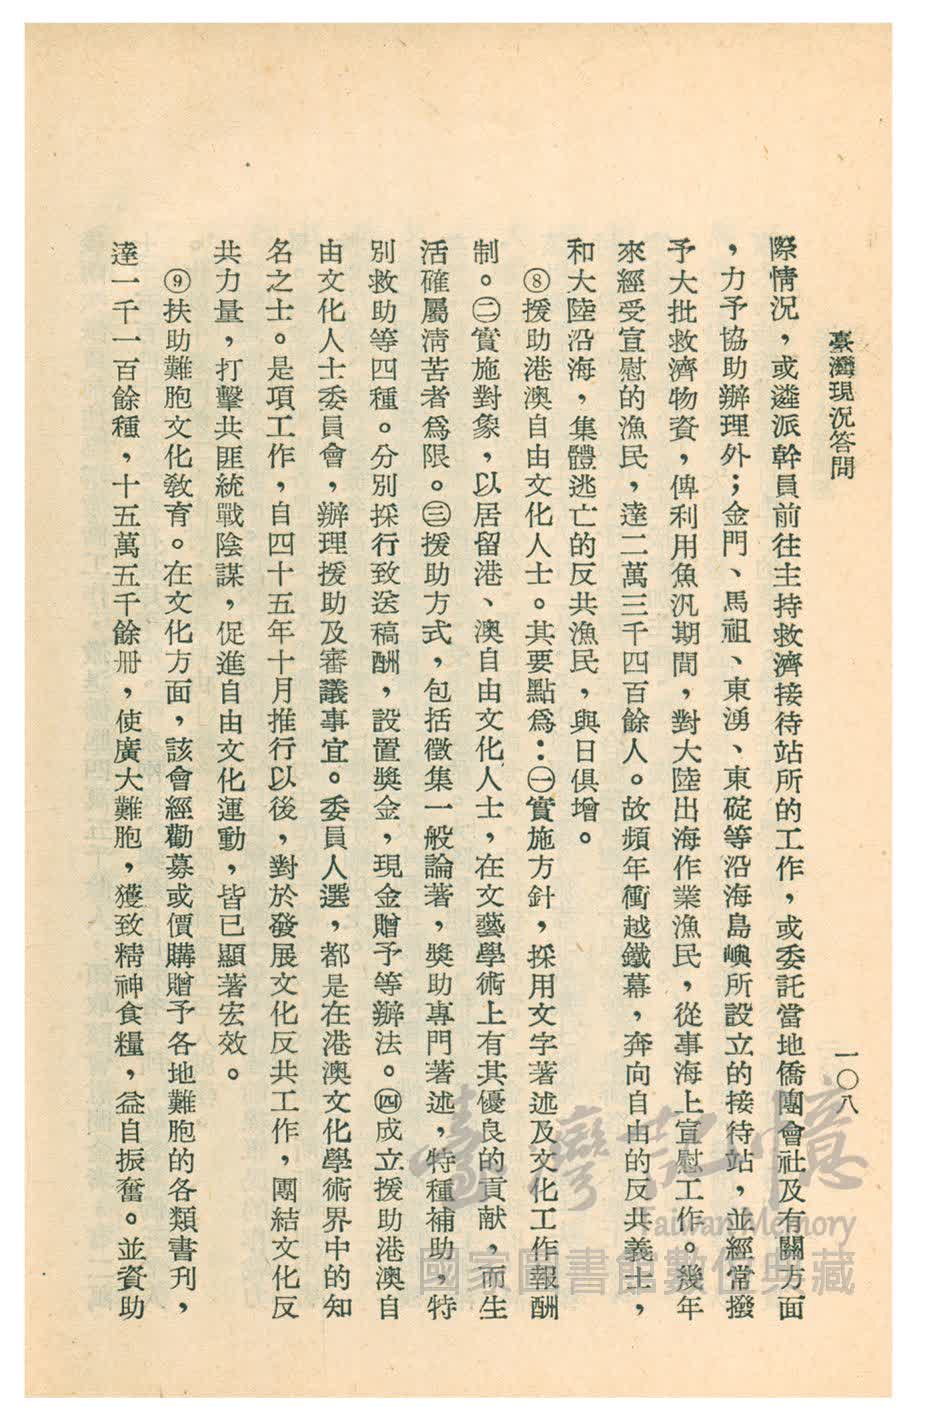 臺灣現況答問
一〇八
際情況，或遴派幹員前往主持救濟接待站所的工作，或委託當地僑團會社及有關方面
，力予協助辦理外；金門、馬祖、東湧、東碇等沿海島嶼所設立的接待站，並經常撥
予大批救濟物資，俾利用魚汛期間，對大陸出海作業漁民，從事海上宣慰工作。幾年
來經受宣慰的漁民，達二萬三千四百餘人。故頻年衝越鐵幕，奔向自由的反共義士，
和大陸沿海，集體逃亡的反共漁民，與日俱增。
⑧援助港澳自由文化人士。其要點為：㊀實施方針，採用文字著述及文化工作報酬
制。㊁實施對象，以居留港、澳自由文化人士，在文藝學術上有其優良的貢献，而生
活確屬清苦者為限。㊂援助方式，包括徵集一般論著，獎助專門著述，特種補助，特
別救助等四種。分別採行致送稿酬，設置獎金，現金贈予等辦法。㊃成立援助港澳自
由文化人士委員會，辦理援助及審議事宜。委員人選，都是在港澳文化學術界中的知
名之士。是項工作，自四十五年十月推行以後，對於發展文化反共工作，團結文化反
共力量，打擊共匪統戰陰謀，促進自由文化運動，皆已顯著宏效。
⑨扶助難胞文化教育。在文化方面，該會經勸募或價購贈予各地難胞的各類書刊，
達一千一百餘種，十五萬五千餘冊，使廣大難胞，獲致精神食糧，益自振奮。並資助
臺灣記憶
Taiwan Memory
國家圖書館數位典藏